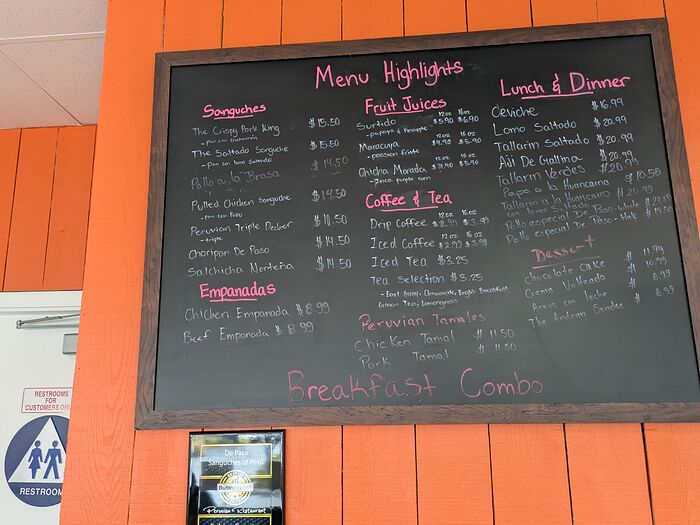 Menu Highlights
Sanguches
The Crispy Pork King $15.50
- pan con chicharron
The Saltado Sanguche $15.50
- pan con lomo saltado
Pollo a la Brasa $14.50
Pulled Chicken Sanguche $14.50
- pan con Pavo
Peruvian Triple Decker
- triple
Choripan De Paso $14.50
Salchicha Norteña $14.50
Empanadas
Chicken Empanada $8.99
Beef Empanada $8.99
Fruit Juices
12 oz 16 oz
Surtido $5.90 $6.90
- papaya & Pineapple
12 oz 16 oz
Maracuya $4.90 $5.90
- passion fruit
12 oz 16 oz
Chicha Morada $4.90 $5.90
- Inca purple corn
Coffee & Tea
12 oz 16 oz
Drip Coffee $2.99 $3.99
12 oz 16 oz
Iced Coffee $2.99 $3.99
Iced Tea $3.25
Tea Selection $3.25
- Earl Gray, Chamomile, English Breakfast
Green Tea, Lemongrass
Peruvian Tamales
Chicken Tamal $11.50
Pork Tamal $11.50
Lunch & Dinner
Ceviche $16.99
Lomo Saltado $20.99
Tallarin Saltado $20.99
Aji De Gallina $20.99
Tallarin Verdes $20.99
Papa a la Huancaina $10.50
Tallarin a la Huancaina $20.99
con lomo Saltado
Pollo especial De Paso - Whole
Pollo especial De Paso - Half $19.50
Dessert
Chocolate Cake $11.99
Crema Volteada $10.99
Arroz con leche $8.99
The Andean Sundae $8.99
Breakfast Combo
RESTROOMS
FOR
CUSTOMERS ON
RESTROOM
De Paso
Sanguches of Peru
Peruvian Restaurant